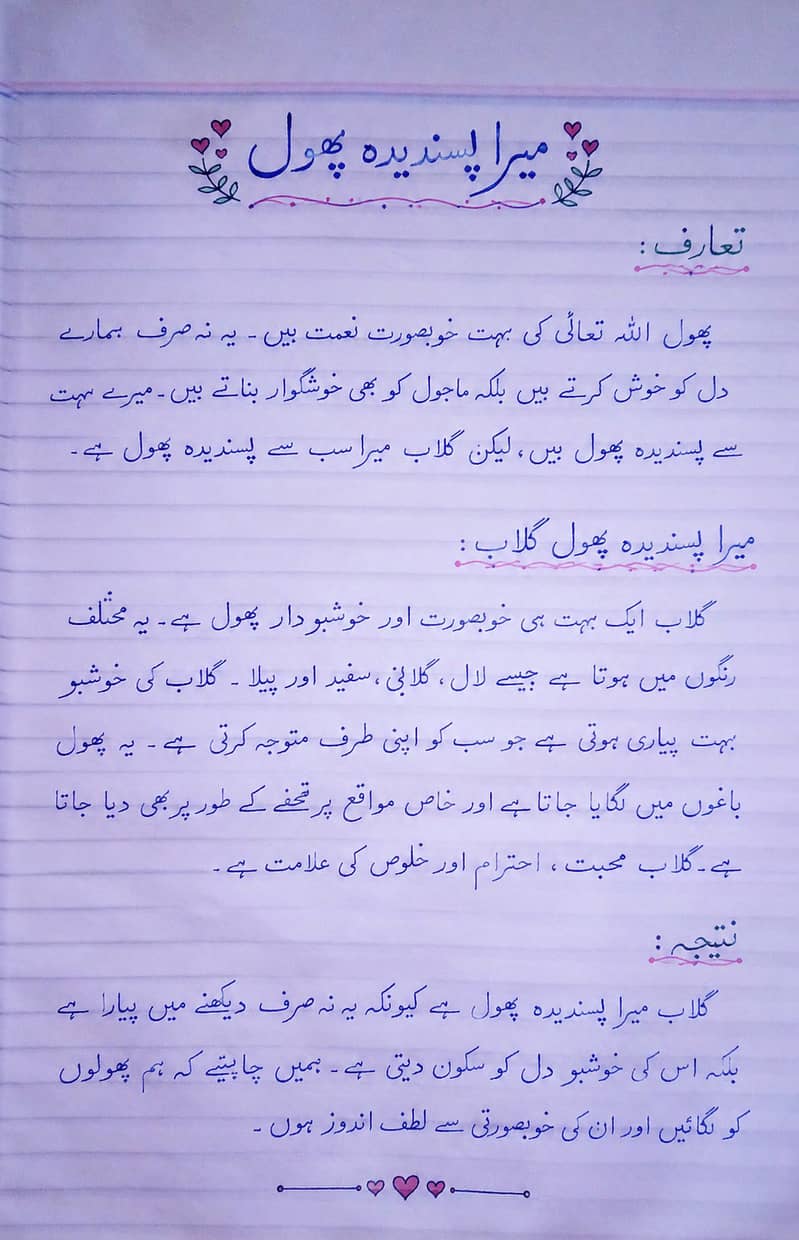 میرا پسندیدہ پھول
تعارف :
پھول اللہ تعالٰی کی بہت خوبصورت نعمت ہیں ۔ یہ نہ صرف ہمارے
دل کو خوش کرتے ہیں بلکہ ماحول کو بھی خوشگوار بناتے ہیں ۔ میرے بہت
سے پسندیدہ پھول ہیں، لیکن گلاب میرا سب سے پسندیدہ پھول ہے ۔
میرا پسندیدہ پھول گلاب :
گلاب ایک بہت ہی خوبصورت اور خوشبودار پھول ہے ۔ یہ مختلف
رنگوں میں ہوتا ہے جیسے لال، گلابی، سفید اور پیلا ۔ گلاب کی خوشبو
بہت پیاری ہوتی ہے جو سب کو اپنی طرف متوجہ کرتی ہے ۔ یہ پھول
باغوں میں لگایا جاتا ہے اور خاص مواقع پر تحفے کے طور پر بھی دیا جاتا
ہے ۔ گلاب محبت ، احترام اور خلوص کی علامت ہے ۔
نتیجہ :
گلاب میرا پسندیدہ پھول ہے کیونکہ یہ نہ صرف دیکھنے میں پیارا ہے
بلکہ اس کی خوشبو دل کو سکون دیتی ہے ۔ ہمیں چاہیئے کہ ہم پھولوں
کو لگائیں اور ان کی خوبصورتی سے لطف اندوز ہوں ۔